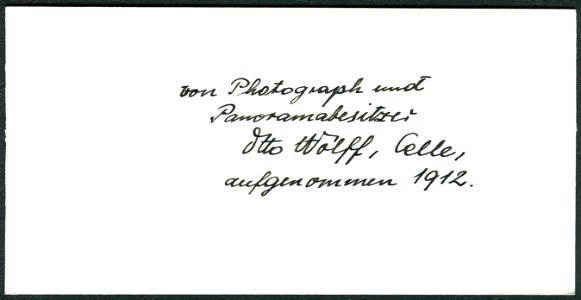 von Photograph und
Panoramabesitzer
Otto Wolff, Celle,
aufgenommen 1912.